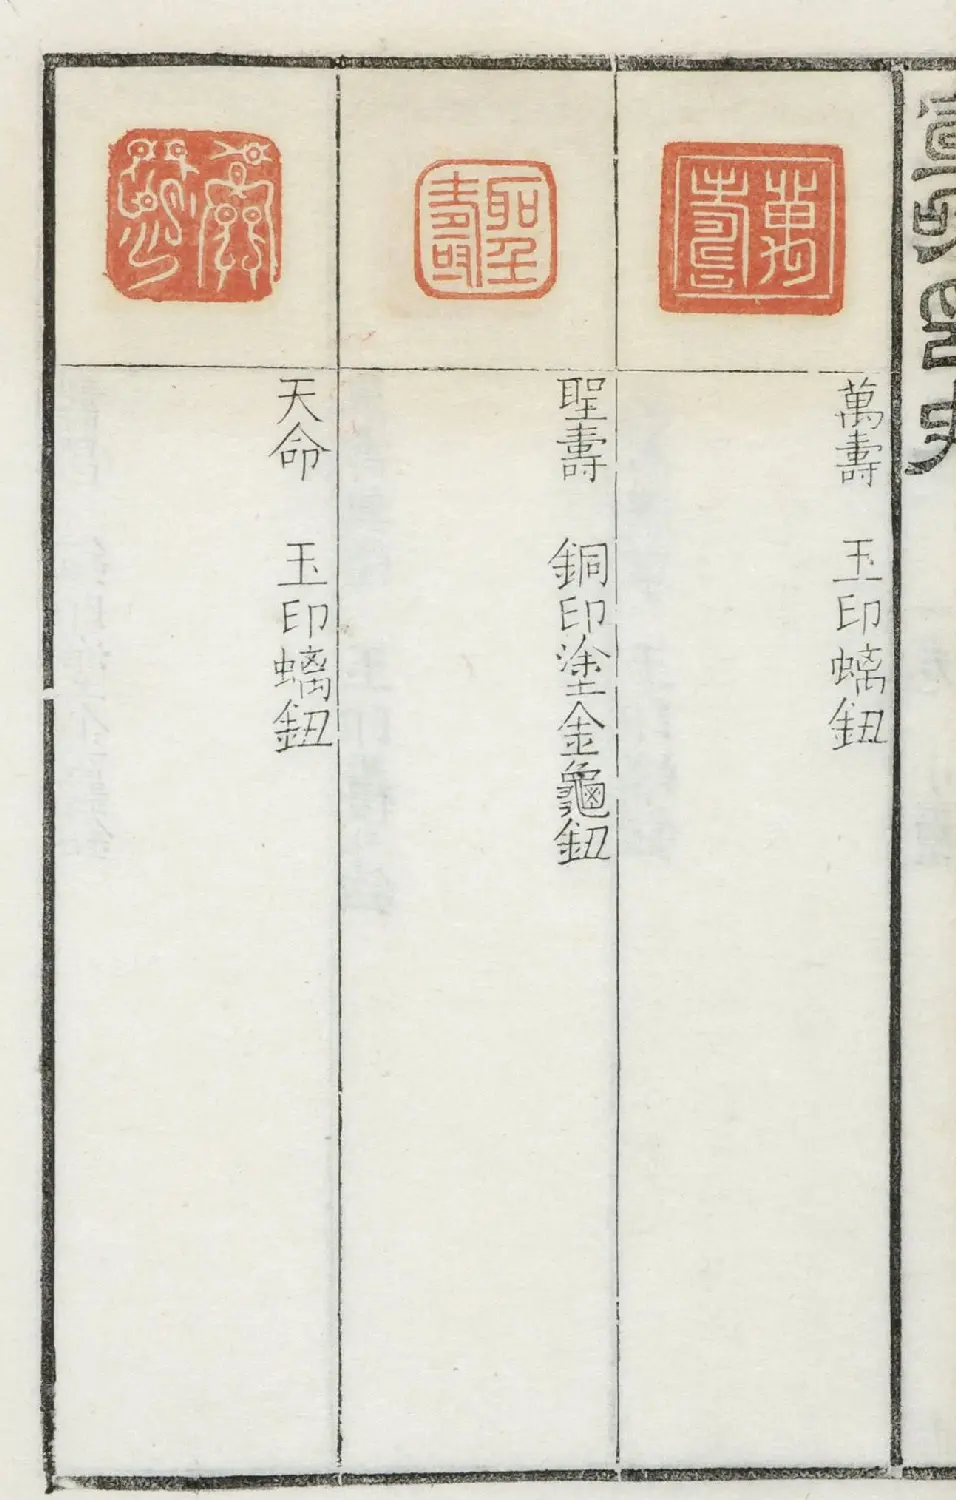 萬壽 玉印螭鈕
聖壽 銅印塗金龜鈕
天命 玉印螭鈕
萬壽
聖壽